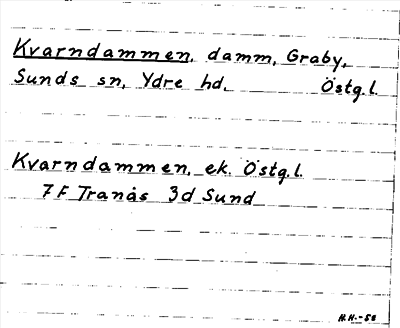 Kvarndammen, damm, Graby,
Sunds sn, Ydre hd. Östg.l.
Kvarndammen, ek. Östg.l.
7F Tranås 3d Sund
H.H.-58